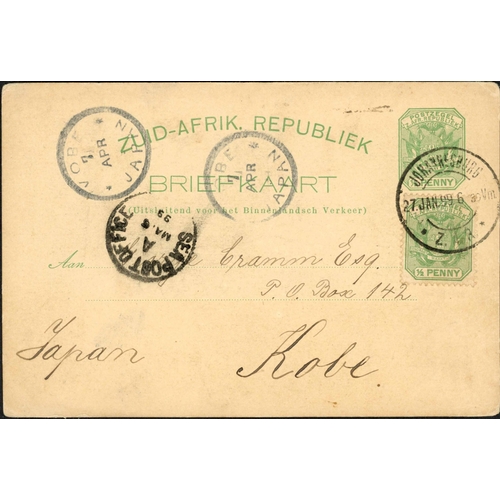 ZUID-AFRIK. REPUBLIEK
BRIEFKAART
(Uitsluitend voor het Binnenlandsch Verkeer)
PENNY
JOHANNESBURG
27 JAN 99 6
Z. A. R.
½ PENNY
KOBE
7
APR
JAPAN
KOBE
7
APR
JAPAN
SEA POST OFFICE
A
MA 6
99
Aan Cramm Esq.
P.O. Box 142
Japan Kobe.